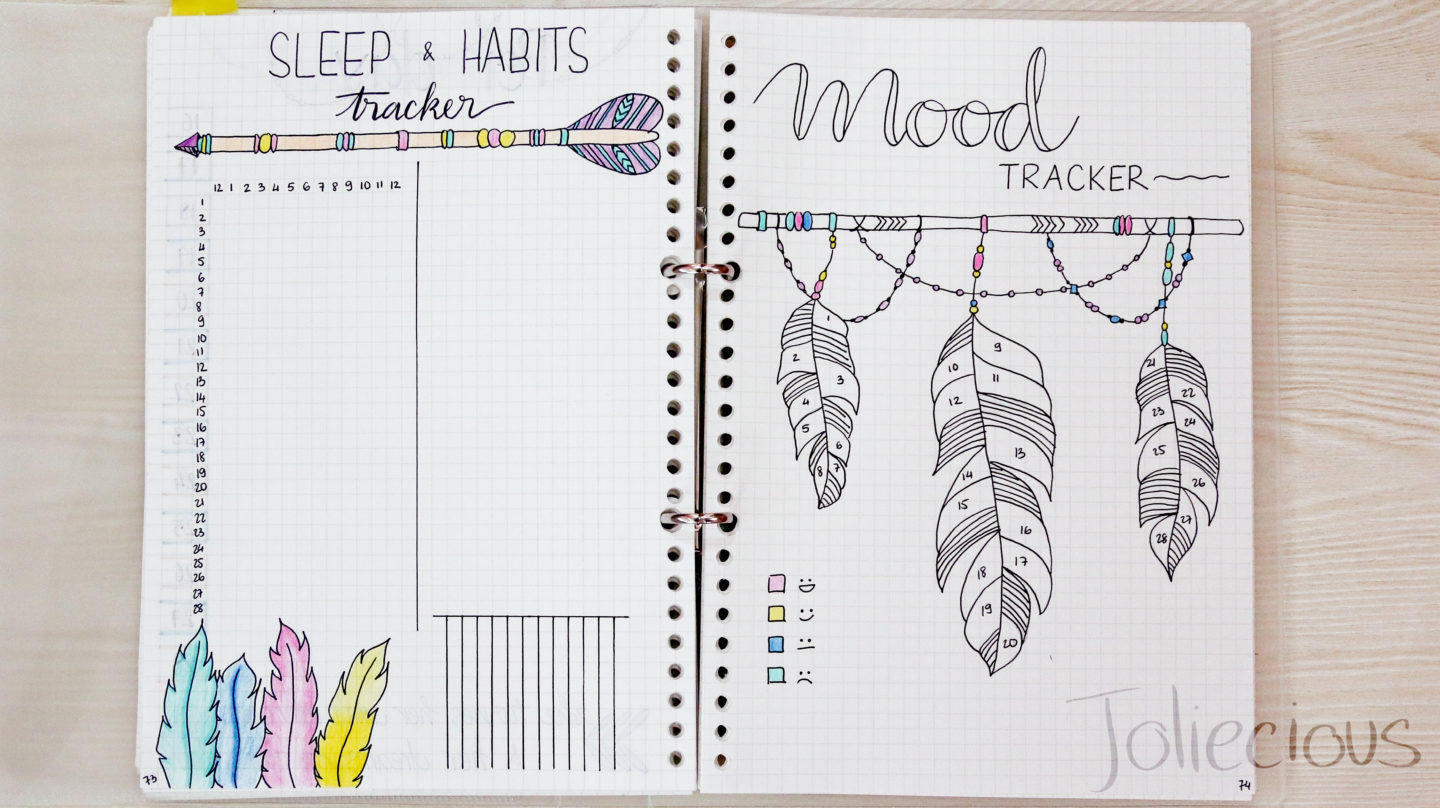 SLEEP & HABITS
tracker
12 1 2 3 4 5 6 7 8 9 10 11 12
1
2
3
4
5
6
7
8
9
10
11
12
13
14
15
16
17
18
19
20
21
22
23
24
25
26
27
28
73
Mood
TRACKER
1
2
3
4
5
6
7
8
9
10
11
12
13
14
15
16
17
18
19
20
21
22
23
24
25
26
27
28
:D
:)
:|
:(
Joliecious
74